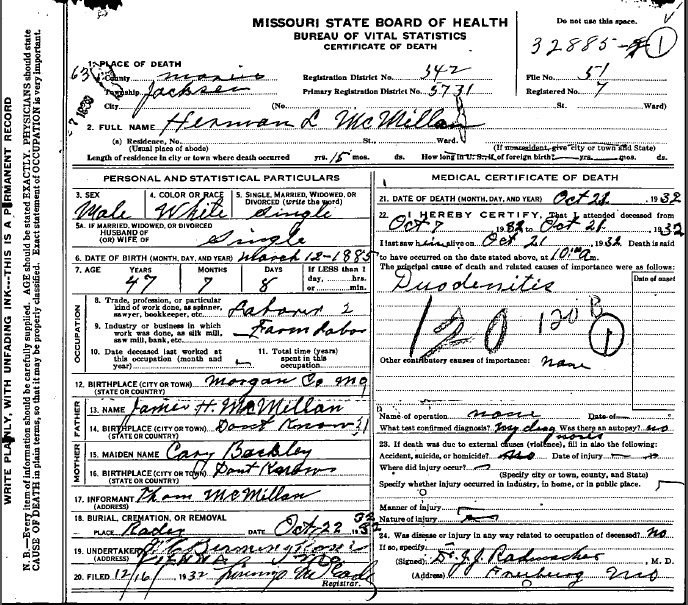 MISSOURI STATE BOARD OF HEALTH
BUREAU OF VITAL STATISTICS
CERTIFICATE OF DEATH
Do not use this space.
32885
1
1. PLACE OF DEATH
County Maries
Township Jackson
City
(No.
Registration District No. 342
Primary Registration District No. 5731
File No. 51
Registered No. 7
St. Ward)
2. FULL NAME Herman L McMillan
(a) Residence, No. St., Ward.
(Usual place of abode) (If nonresident, give city or town and State)
Length of residence in city or town where death occurred yrs. 15 mos. ds. How long in U. S., if of foreign birth? yrs. mos. ds.
PERSONAL AND STATISTICAL PARTICULARS
3. SEX
Male
4. COLOR OR RACE
White
5. SINGLE, MARRIED, WIDOWED, OR DIVORCED (write the word)
Single
5A. IF MARRIED, WIDOWED, OR DIVORCED
HUSBAND OF
(OR) WIFE OF Single
6. DATE OF BIRTH (MONTH, DAY, AND YEAR) March 12-1885
7. AGE YEARS MONTHS DAYS If LESS than 1 day, hrs. or min.
47 7 8
OCCUPATION
8. Trade, profession, or particular kind of work done, as spinner, sawyer, bookkeeper, etc. Laborer 2
9. Industry or business in which work was done, as silk mill, saw mill, bank, etc. Farm Labor
10. Date deceased last worked at this occupation (month and year)
11. Total time (years) spent in this occupation
12. BIRTHPLACE (CITY OR TOWN) Morgan Co Mo
(STATE OR COUNTRY)
FATHER
13. NAME James H. McMillan
14. BIRTHPLACE (CITY OR TOWN) Dont Know
(STATE OR COUNTRY)
MOTHER
15. MAIDEN NAME
16. BIRTHPLACE (CITY OR TOWN) Dont Know
(STATE OR COUNTRY)
17. INFORMANT Thom McMillan
(ADDRESS)
18. BURIAL, CREMATION, OR REMOVAL
PLACE DATE Oct 22 32
19. UNDERTAKER
(ADDRESS) VIENNA
20. FILED 12/16/ 1932
Registrar.
MEDICAL CERTIFICATE OF DEATH
21. DATE OF DEATH (MONTH, DAY, AND YEAR) Oct 21 1932
22. I HEREBY CERTIFY, That I attended deceased from
Oct 7 1932 to Oct 21 1932
I last saw him alive on Oct 21 1932 Death is said
to have occurred on the date stated above, at 10 am.
The principal cause of death and related causes of importance were as follows:
Duodenitis
Date of onset
120
120 B
1
Other contributory causes of importance: none
Name of operation none Date of
What test confirmed diagnosis? Was there an autopsy? no
23. If death was due to external causes (violence), fill in also the following:
Accident, suicide, or homicide? Date of injury
Where did injury occur?
(Specify city or town, county, and State)
Specify whether injury occurred in industry, in home, or in public place.
Manner of injury
Nature of injury
24. Was disease or injury in any way related to occupation of deceased? no
If so, specify
(Signed) Dr. J.J. M. D.
(Address) Freeburg Mo
WRITE PLAINLY, WITH UNFADING INK---THIS IS A PERMANENT RECORD
N. B.—Every item of information should be carefully supplied. AGE should be stated EXACTLY. PHYSICIANS should state
CAUSE OF DEATH in plain terms, so that it may be properly classified. Exact statement of OCCUPATION is very important.